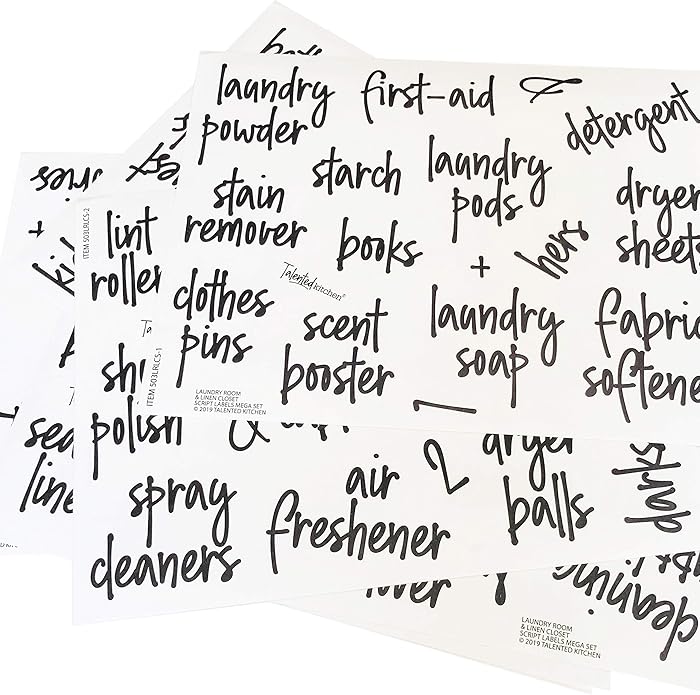 laundry
powder
first-aid
&
detergent
stain
remover
starch
laundry
pods
dryer
sheets
books
+
hers
Talented Kitchen®
clothes
pins
scent
booster
laundry
soap
LAUNDRY ROOM
& LINEN CLOSET
SCRIPT LABELS MEGA SET
© 2019 TALENTED KITCHEN
ITEM 503LRLCS-1
ITEM 503LRLCS-2
lint
+
polish
&
2
dryer
balls
spray
cleaners
air
freshener
LAUNDRY ROOM
& LINEN CLOSET
SCRIPT LABELS MEGA SET
© 2019 TALENTED KITCHEN